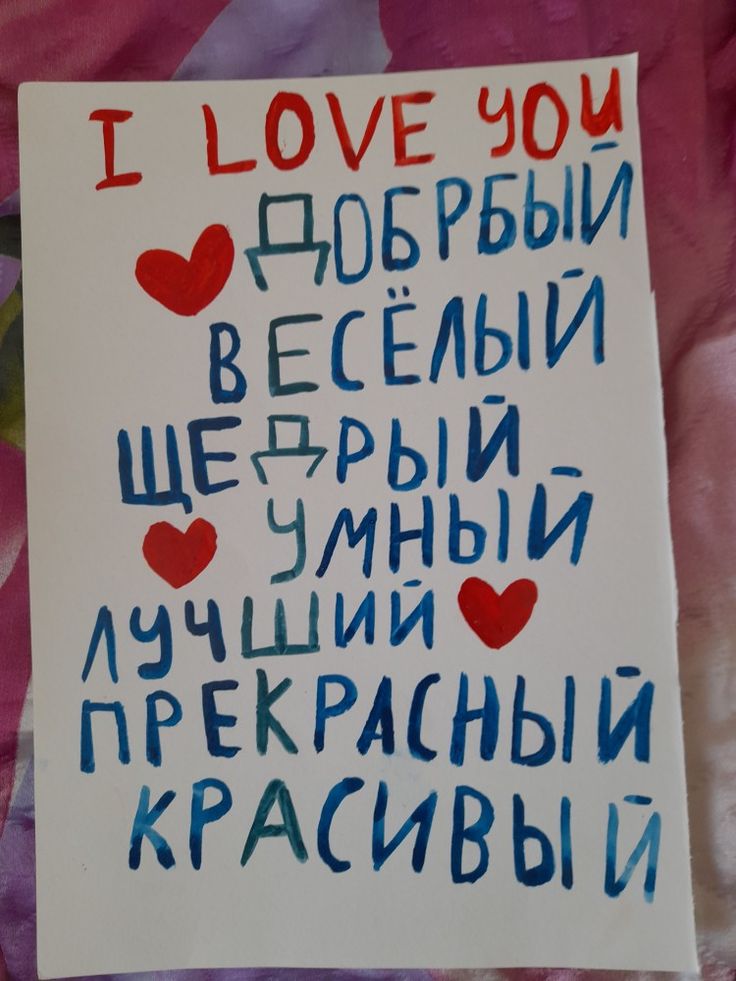 I LOVE YOU
ДОБРБЫЙ
ВЕСЁЛЫЙ
ЩЕДРЫЙ
УМНЫЙ
ЛУЧШИЙ
ПРЕКРАСНЫЙ
КРАСИВЫЙ